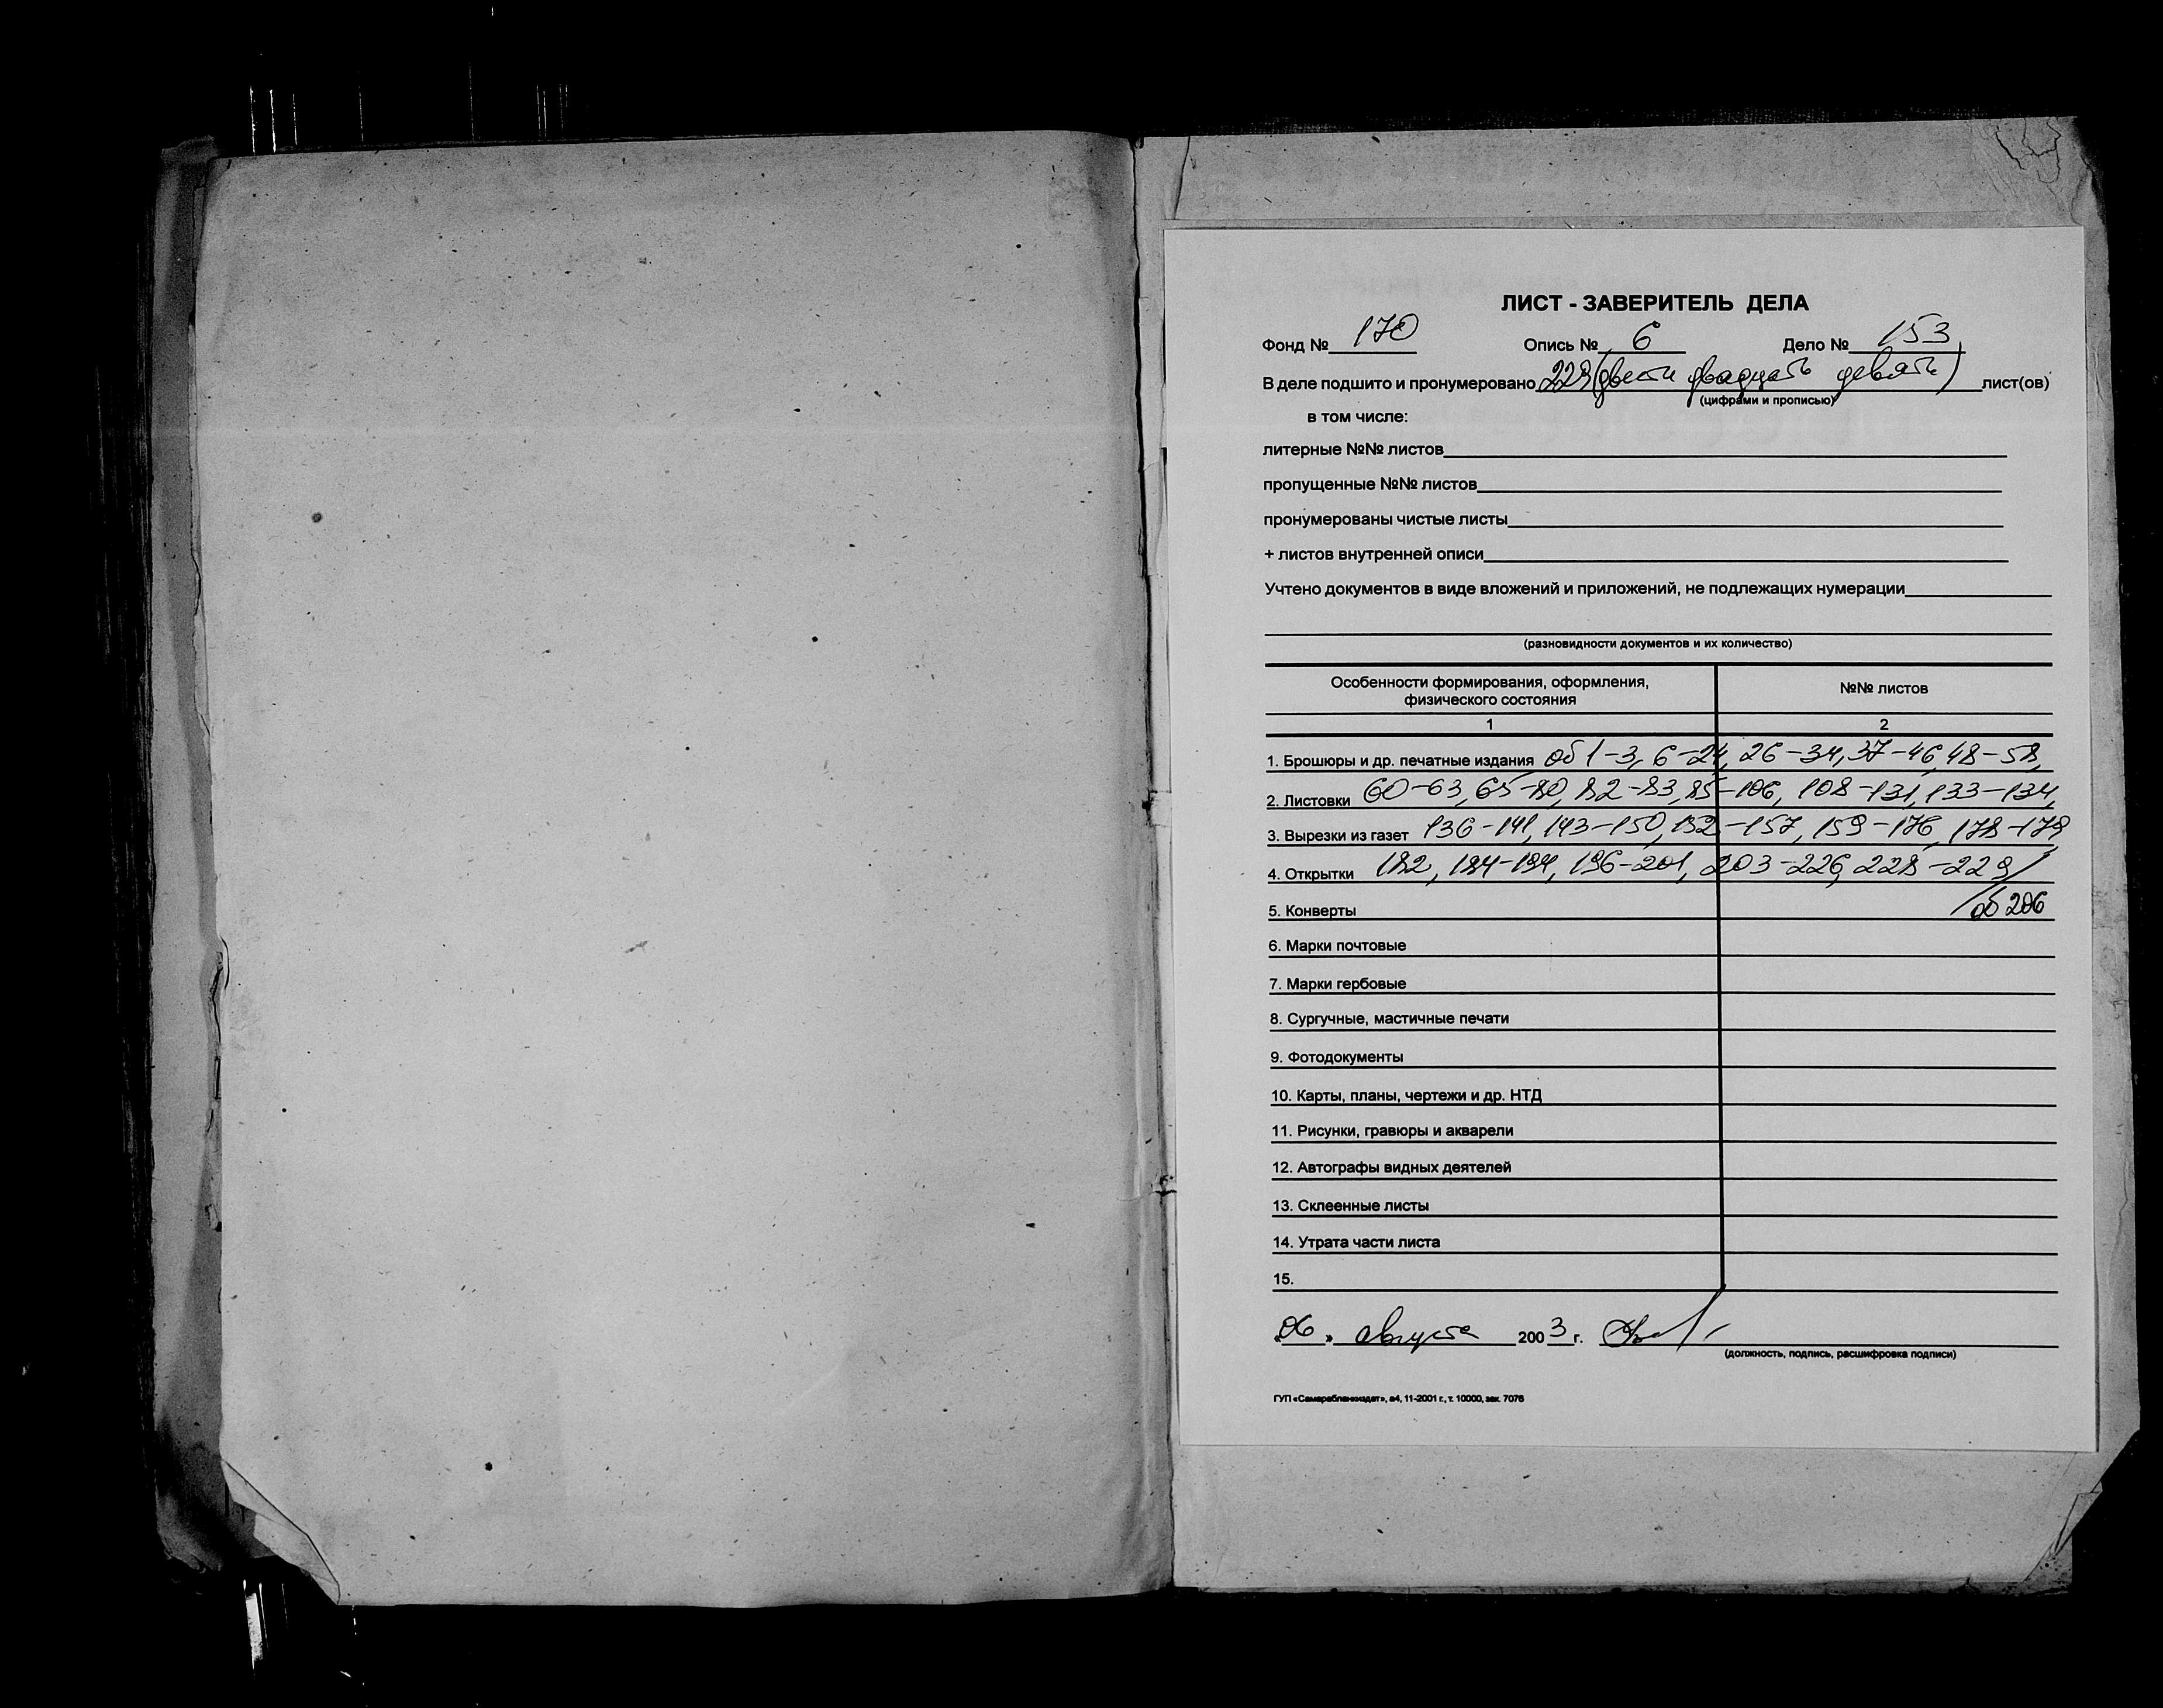 ЛИСТ - ЗАВЕРИТЕЛЬ ДЕЛА
Фонд № 170 Опись № 6 Дело № 153
В деле подшито и пронумеровано 229 (двести двадцать девять) лист(ов)
(цифрами и прописью)
в том числе:
литерные №№ листов
пропущенные №№ листов
пронумерованы чистые листы
+ листов внутренней описи
Учтено документов в виде вложений и приложений, не подлежащих нумерации
(разновидности документов и их количество)
Особенности формирования, оформления, №№ листов
физического состояния
1 2
1. Брошюры и др. печатные издания об 1-3, 6-24, 26-34, 37-46, 48-58,
2. Листовки 60-63, 65-80, 82-83, 85-106, 108-131, 133-134,
3. Вырезки из газет 136-141, 143-150, 152-157, 159-176, 178-179
4. Открытки 182, 184-194, 196-201, 203-226, 228-229/
5. Конверты /об 206
6. Марки почтовые
7. Марки гербовые
8. Сургучные, мастичные печати
9. Фотодокументы
10. Карты, планы, чертежи и др. НТД
11. Рисунки, гравюры и акварели
12. Автографы видных деятелей
13. Склеенные листы
14. Утрата части листа
15.
«06» августа 2003 г.
(должность, подпись, расшифровка подписи)
ГУП «Самарабланкиздат», а4, 11-2001 г., т. 10000, зак. 7076